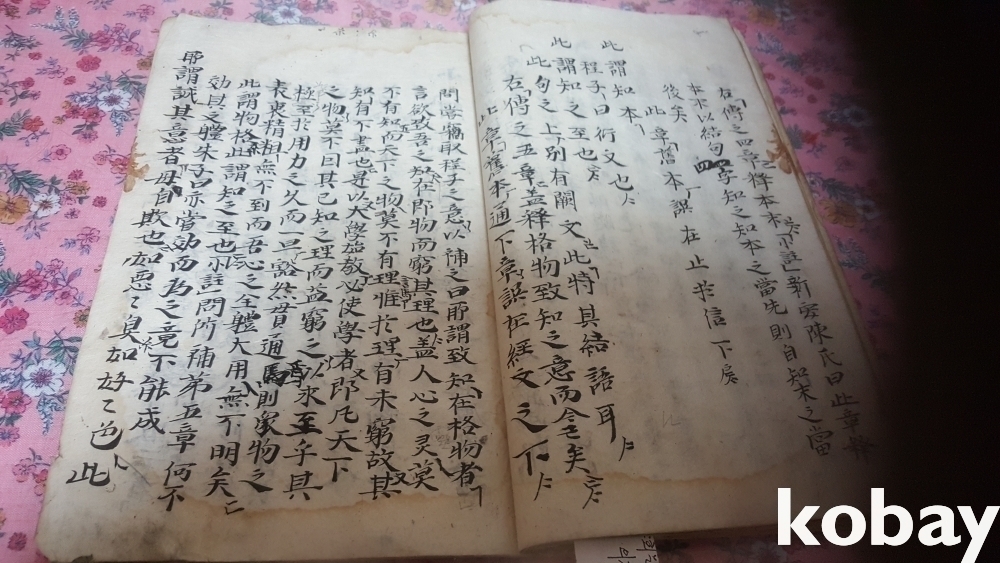 右傳之四章釋本末小註新安陳氏曰此章釋
本末以結句四字知之知本之當先則自知末之當
後矣
此章舊本誤在止於信下
此謂知本
程子曰衍文也
此謂知之至也
此句之上別有闕文此特其結語耳
右傳之五章盖釋格物致知之意而今亡矣
此章舊本通下章誤在經文之下
間嘗竊取程子之意以補之曰所謂致知在格物者
言欲致吾之知在即物而窮其理也盖人心之灵莫
不有知而天下之物莫不有理惟於理有未窮故其
知有不盡也是以大學始敎必使學者即凡天下
之物莫不因其已知之理而益窮之以求至乎其
極至於用力之久而一旦豁然貫通焉則衆物之
表裏精粗無不到而吾心之全體大用無不明矣
此謂物格此謂知之至也小註問所補第五章何不
効其文體朱子曰亦嘗効而爲之竟不能成
所謂誠其意者毋自欺也如惡〻臭如好〻色此
kobay